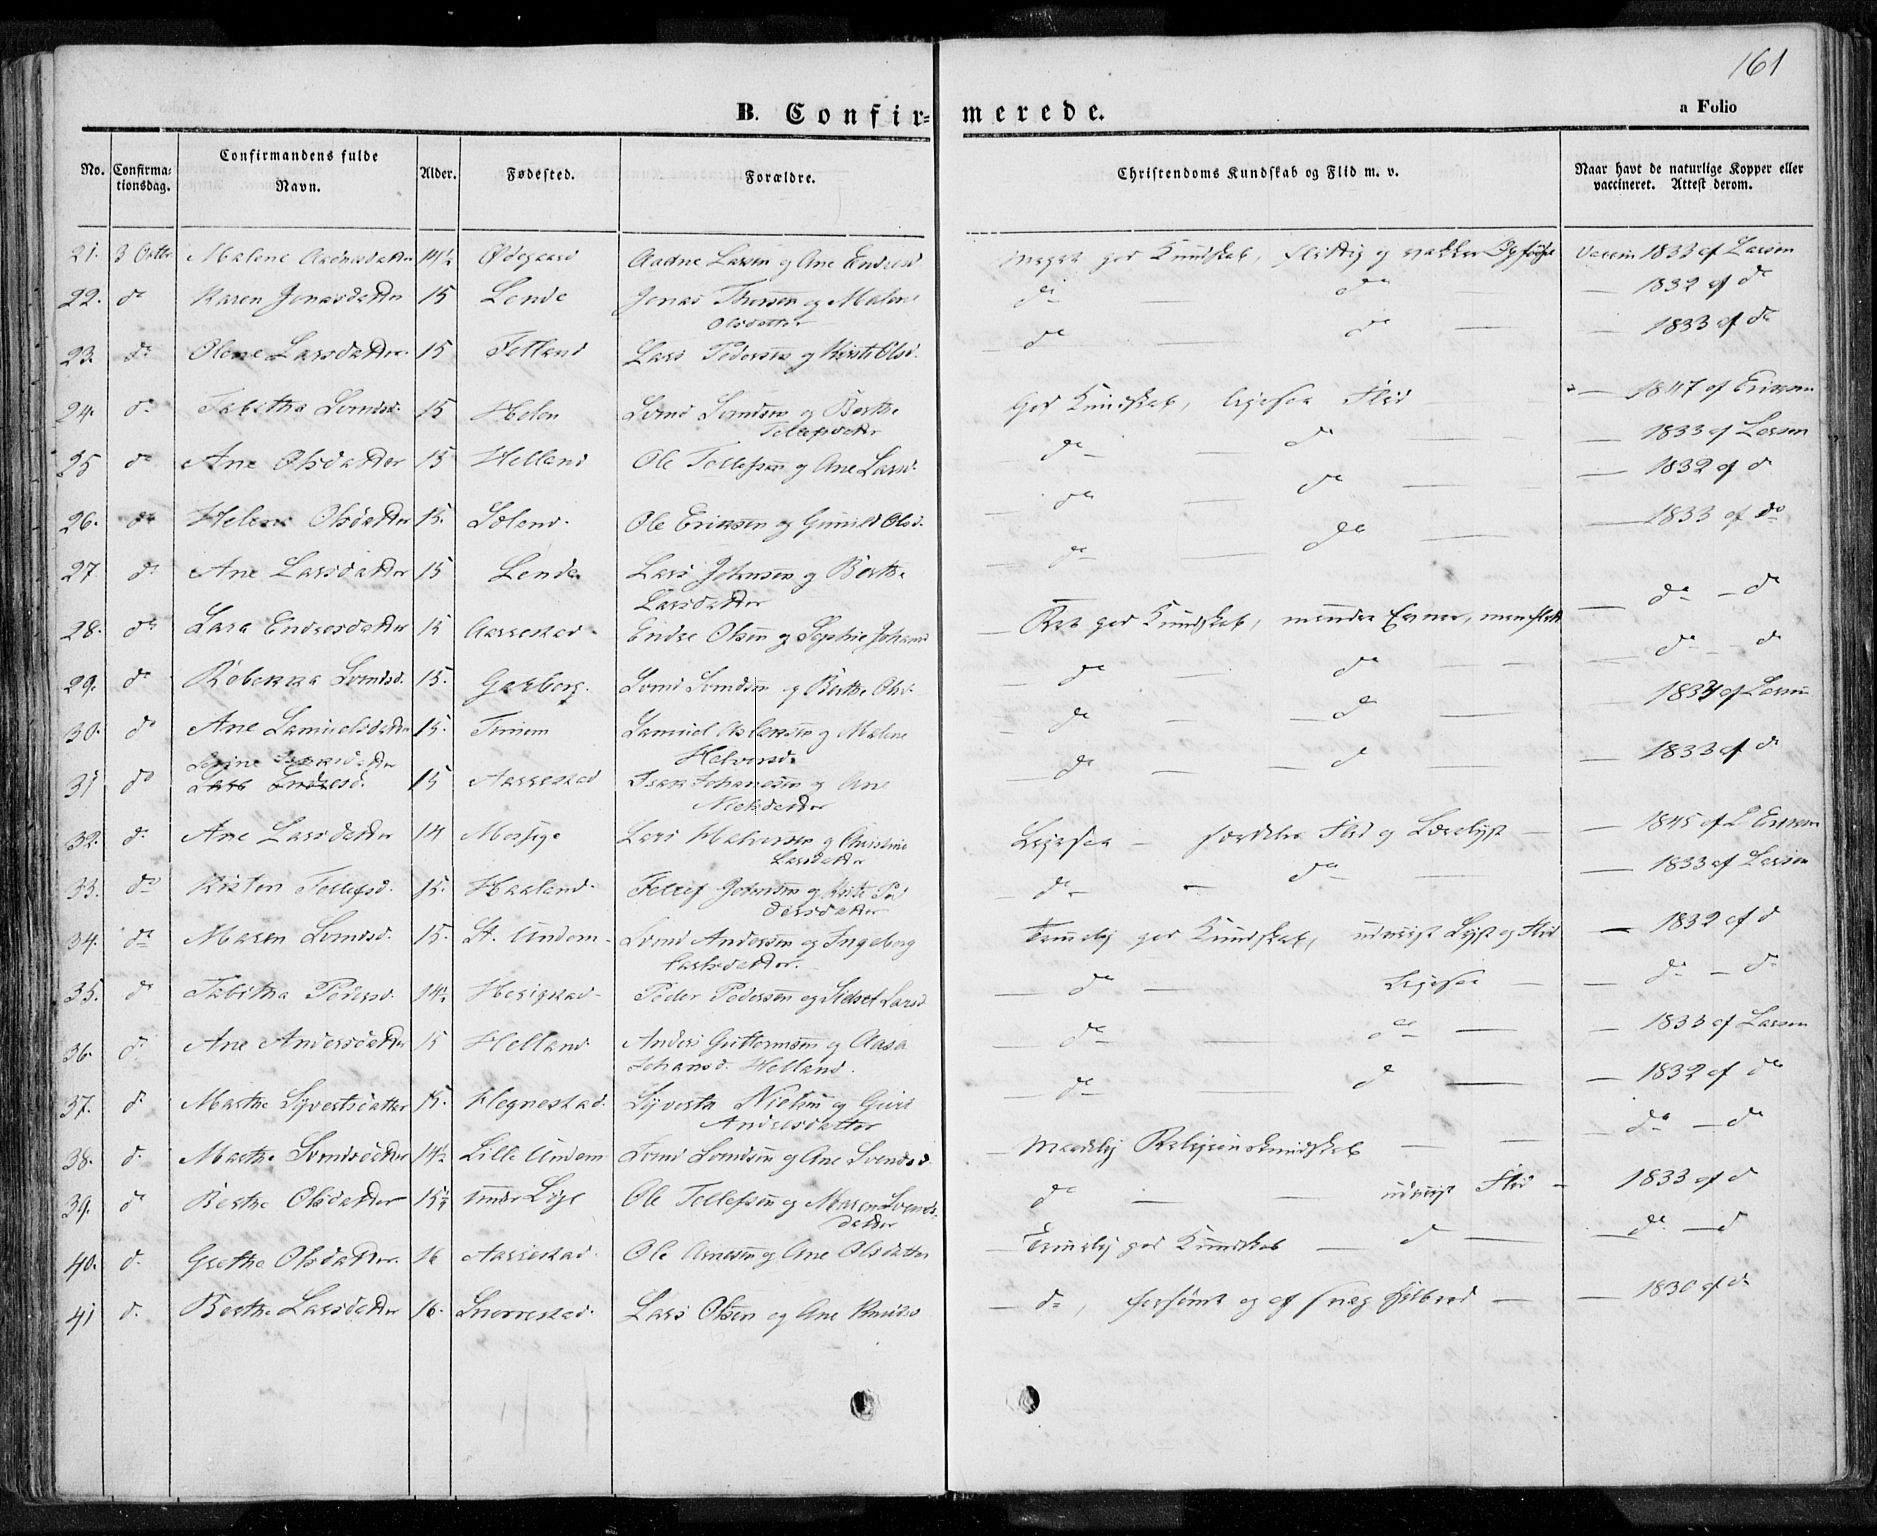 161
B. Confir= merede.
a Folio
No. Confirma=tionsdag. Confirmandens fulde Navn. Alder. Fødested. Forældre. Christendoms Kundskab og Flid m. v. Naar havt de naturlige Kopper eller vaccineret. Attest derom.
21. 3 Octbr Malene 14½ Ødegaard Aadne Larsen og Ane Endresd Meget god Kundskab, flittig og vakker Opførsel Vaccin 1833 af Larsen
22. do Karen Jonasdatter 15 Lende Jonas Thorsen og Malene do do 1832 af do
Olsdatter
23. do Olene Larsdatter 15 Fotland Lars Pedersen og Kirsti Olsd. do do 1833 af do
24. do Tabitha Svendsd. 15 Svend Svendsen og Berthe God Kundskab, ligesaa Flid 1847 af Eriksen
Tollefsdatter
25 do Ane Olsdatter 15 Helland Ole Tollefsen og Ane Larsd. do do 1833 af Larsen
26. do Helene Olsdatter 15. Ole Eriksen og Gunild Olsd. do do 1832 af do
27 do Ane Larsdatter 15 Lende Lars Johnsen og Berthe do do 1833 af do
Larsdatter
28. do Lara Endresdatter 15 Aarrestad Endre Olsen og Sophie Johans Ret god Kundskab, mindre Evner, men flid do do
29. do Rebekka Svendsd. 15. Garborg. Svend Svendsen og Berthe Olsd. do do do do
30. do Ane Samuelsdatter 15. Timem Samuel Aslaksen og Malene do do 1834 af Larsen
Helversd.
31 do Lars Endresd. 15 Aarrestad Isak Johanesen og Ane do do 1833 af do
Nielsdatter
32. do Ane Larsdatter 14 Mossige Lars Halvorsen og Christine Ligesaa fordeles Flid og Lærelyst 1845 af L. Eriksen
Larsdatter
33. do Kisten Tollefsd. 15. Haaland. Tollef Johnsen og Kirsti Pe do do 1833 af Larsen
dersdatter
34. do Maren Svendsd. 15. St. Undem Svend Andersen og Ingeborg Temmelig god Kundskab, udvist Lyst og Flid 1832 af d
Carlsdatter.
35. do Tabitha Pedersd. 14½ Herigstad Peder Pedersen og Sidsel Larsd. do Ligesaa do do
36. do Ane Andersdatter 15 Helland Anders Guttormsen og Aasa do do 1833 af Larsen
Johansd. Helland.
37. d. Marthe Syvertsdatter 15. Hegnestad. Syverta Nielsen og Guri do d 1832 af do
Andresdatter
38. d. Marthe Svendsdatter 14½ Lille Undem Svend Svendsen og Ane Svendsd. Maadelig Religionskundskab do do
39. do Berthe Olsdatter 15½ Ole Tollefsen og Maren Svends. do udvist Flid 1833 af d
datter
40. d. Grethe Olsdatter. 16 Aarrestad. Ole Arnesen og Ane Olsdatter Temmelig god Kundskab d do d
41 d. Berthe Larsdatter 16. Snorrestad. Lars Olsen og Ane Knudsd do, forsømt og af svag Helbred 1830 af do